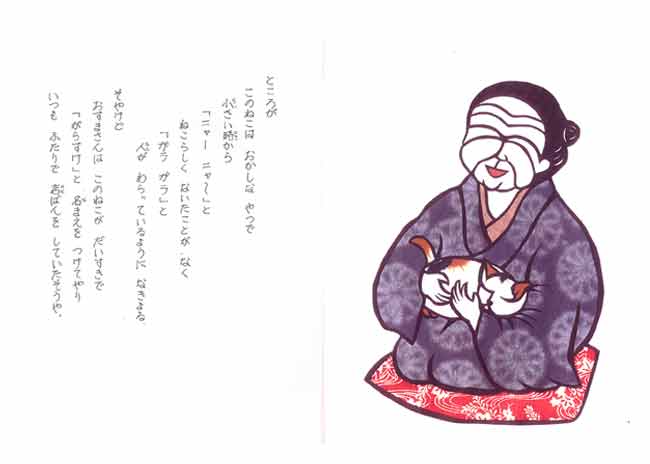 ところが
このねこは おかしな やつで
小さい時から
「ニャー ニャ〜」と
ねこらしく ないたことが なく
「ガラ ガラ」と
人が わらっているように なきよる。
そやけど
おすまさんは このねこが だいすきで
「がらすけ」と 名まえを つけてやり
いつも ふたりで 店ばんを していたそうや。